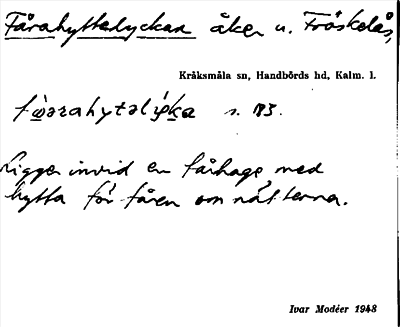 Fårahyttelyckan åker u. Fröskelås,
Kråksmåla sn, Handbörds hd, Kalm. l.
s. 183.
Ligger invid en fårhage med
hytta för fåren om nätterna.
Ivar Modéer 1948